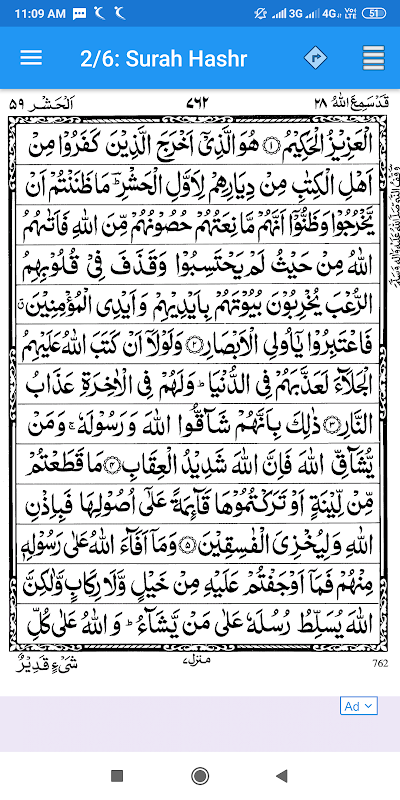 11:09 AM 3G 4G Vo LTE 51
2/6: Surah Hashr
قَدْسَمِعَ اللّٰهُ ٢٨ ٧٦٢ اَلْحَشْر ٥٩
الْعَزِيْزُ الْحَكِيْمُ ۝١ هُوَ الَّذِيْٓ اَخْرَجَ الَّذِيْنَ كَفَرُوْا مِنْ
اَهْلِ الْكِتٰبِ مِنْ دِيَارِهِمْ لِاَوَّلِ الْحَشْرِ ؔؕ مَا ظَنَنْتُمْ اَنْ
يَّخْرُجُوْا وَظَنُّوْٓا اَنَّهُمْ مَّانِعَتُهُمْ حُصُوْنُهُمْ مِّنَ اللّٰهِ فَاَتٰىهُمُ
اللّٰهُ مِنْ حَيْثُ لَمْ يَحْتَسِبُوْا وَقَذَفَ فِيْ قُلُوْبِهِمُ
الرُّعْبَ يُخْرِبُوْنَ بُيُوْتَهُمْ بِاَيْدِيْهِمْ وَاَيْدِى الْمُؤْمِنِيْنَ ۗ
فَاعْتَبِرُوْا يٰٓاُولِى الْاَبْصَارِ ۝٢ وَلَوْلَآ اَنْ كَتَبَ اللّٰهُ عَلَيْهِمُ
الْجَلَآءَ لَعَذَّبَهُمْ فِى الدُّنْيَا ؕ وَلَهُمْ فِى الْاٰخِرَةِ عَذَابُ
النَّارِ ۝٣ ذٰلِكَ بِاَنَّهُمْ شَآقُّوا اللّٰهَ وَرَسُوْلَهٗ ۚ وَمَنْ
يُّشَآقِّ اللّٰهَ فَاِنَّ اللّٰهَ شَدِيْدُ الْعِقَابِ ۝٤ مَا قَطَعْتُمْ
مِّنْ لِّيْنَةٍ اَوْ تَرَكْتُمُوْهَا قَآئِمَةً عَلٰٓى اُصُوْلِهَا فَبِاِذْنِ
اللّٰهِ وَلِيُخْزِىَ الْفٰسِقِيْنَ ۝٥ وَمَآ اَفَآءَ اللّٰهُ عَلٰى رَسُوْلِهٖ
مِنْهُمْ فَمَآ اَوْجَفْتُمْ عَلَيْهِ مِنْ خَيْلٍ وَّلَا رِكَابٍ وَّلٰكِنَّ
اللّٰهَ يُسَلِّطُ رُسُلَهٗ عَلٰى مَنْ يَّشَآءُ ؕ وَاللّٰهُ عَلٰى كُلِّ
شَىْءٍ قَدِيْرٌ
منزل ٧
762
Ad